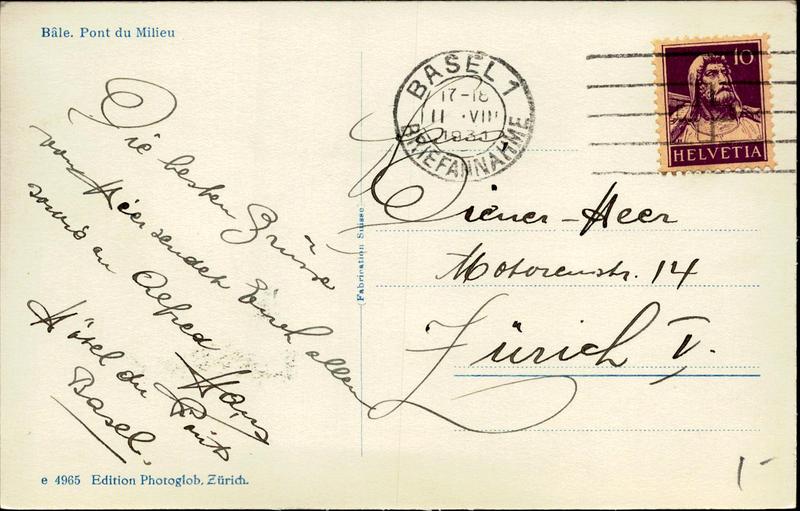 Bâle. Pont du Milieu
Die besten Grüsse
von Hier sendet Euch allen
sowie an Alfred Hans
Hôtel du Pont
Basel.
e 4965 Edition Photoglob, Zürich.
Fabrication Suisse
BASEL 1
17-18
VIII
BRIEFANNAHME
10
HELVETIA
Wiener-Heer
Motorenstr. 14
Zürich V.